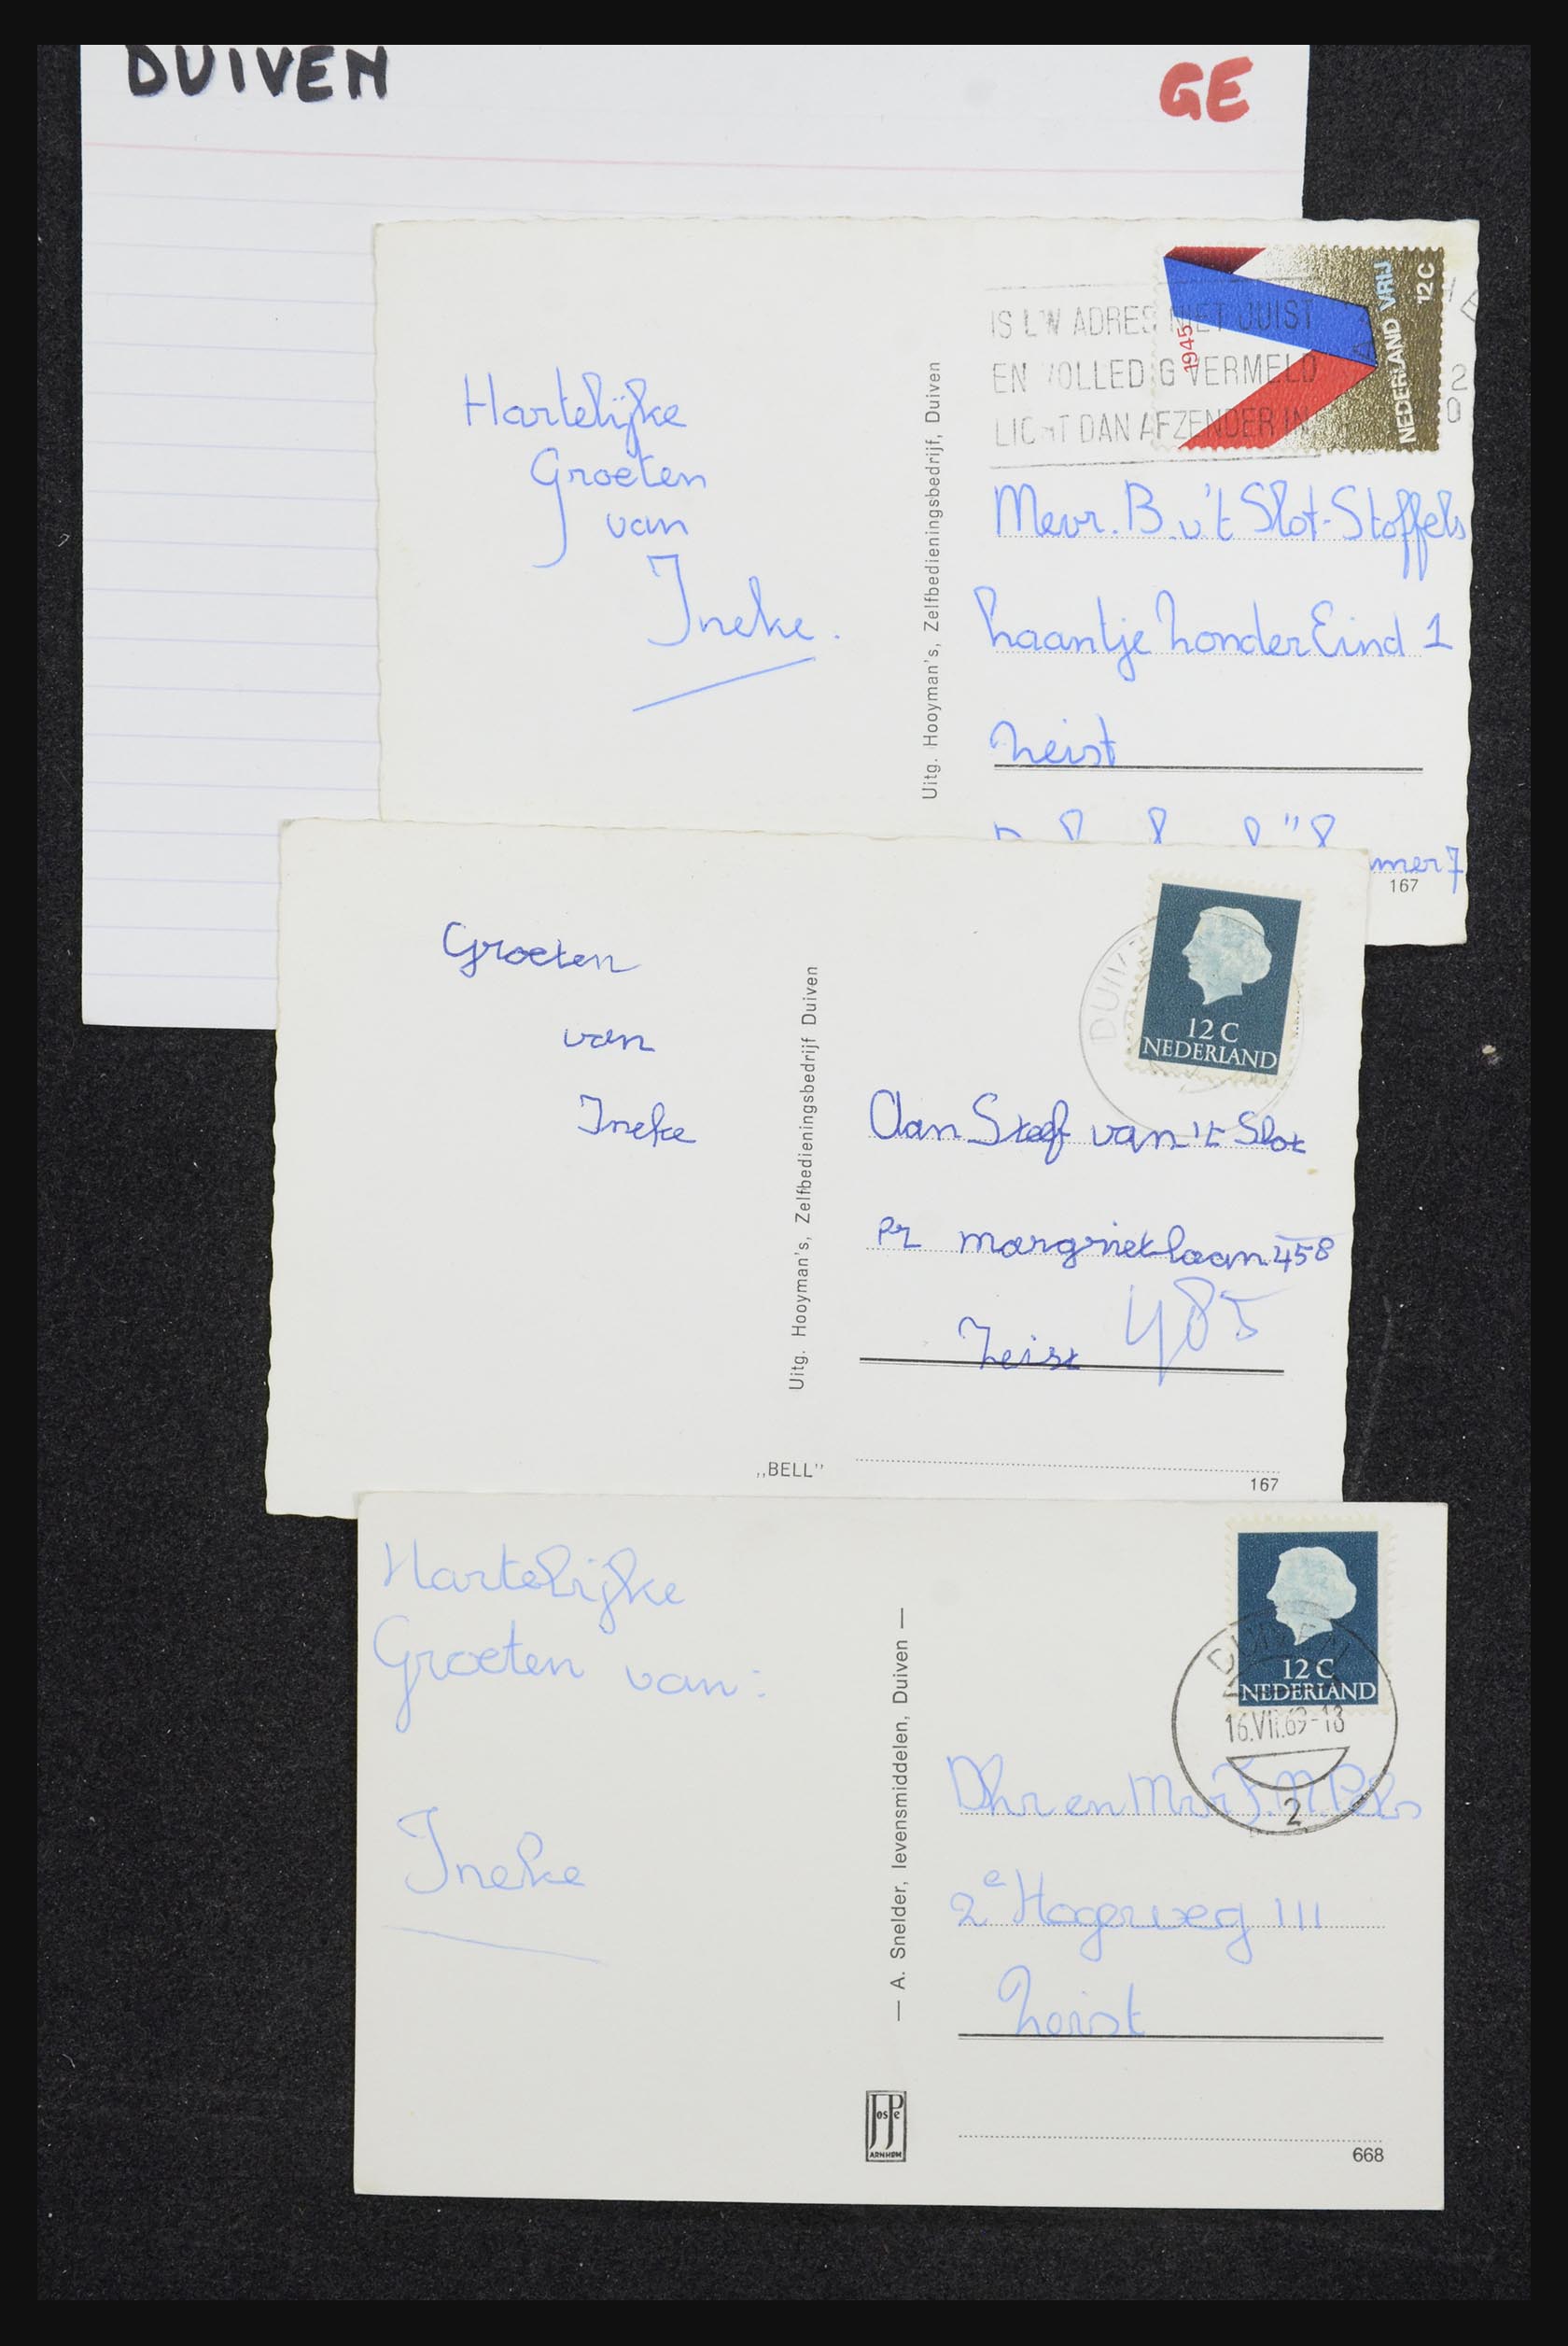 DUIVEN
GE
Hartelijke
Groeten
van
Ineke.
Uitg. Hooyman's, Zelfbedieningsbedrijf, Duiven
IS UW ADRES NIET JUIST
EN VOLLEDIG VERMELD
LICHT DAN AFZENDER IN
1945
NEDERLAND VRIJ
12 C
Mevr. B. v't Slot-Stoffels
haantje zonder Eind 1
Zeist
mer 7
167
Groeten
van
Ineke
Uitg. Hooyman's, Zelfbedieningsbedrijf Duiven
„BELL”
12 C
NEDERLAND
Aan Steef van 't Slot
Pr margrietlaan 458
485
Zeist
167
Hartelijke
Groeten van:
Ineke
— A. Snelder, levensmiddelen, Duiven —
JosPe
ARNHEM
12 C
NEDERLAND
DUIVEN
16.VII.69-18
2
Dhr en Mvr F. N. Pels
2e Hogerweg 111
Zeist
668